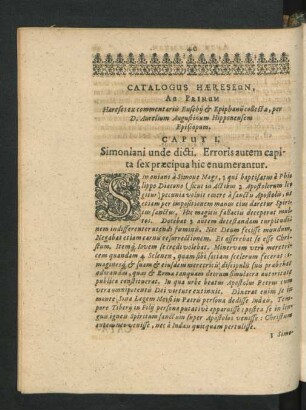 40
CATALOGUS HÆRESEΩN,
AD PRIMUM
Hæreses ex commentariis Eusebij & Epiphanij collecta, per
D. Aurelium Augustinum Hipponensem
Episcopum.
CAPUT I.
Simoniani unde dicti. Erroris autem capi-
ta sex præcipua hic enumerantur.
Simoniani à Simone Mago, qui baptisatus à Phi-
lippo Diacono (sicut in Actibus 3. Apostolorum le-
gitur) pecunia voluit emere à sanctis Apostolis, ut
etiam per impositionem manus ejus daretur Spiri-
tus sanctus. Hic magicis fallaciis deceperat mul-
tos. Docebat autem detestandam turpitudi-
nem indifferenter utendi fæminis. Nec Deum fecisse mundum,
Negabat etiam carnis resurrectionem. Et asserebat se esse Chri-
stum. Itemq́ Jovem se credi volebat. Minervam verò meretri-
cem quandam Selenen, quam sibi sociam scelerum fecerat:
imagines & suam & ejusdem meretricis discipulis suis præbebat
adorandas, quas & Romæ tanquam deorum simulacra autoritate
publica constituerat. In qua urbe beatus Apostolus Petrus eum
vera omnipotentis Dei virtute extinxit. Dixerat enim se in
monte Sina Legem Moysi in Patris persona dedisse Judæis, Tem-
pore Tiberij in Filij persona putative apparuisse: postea se in lin-
guis igneis Spiritum sanctum super Apostolos venisse: Christum
autem nec venisse, nec à Judæis quicquam pertulisse.
2 Simo-